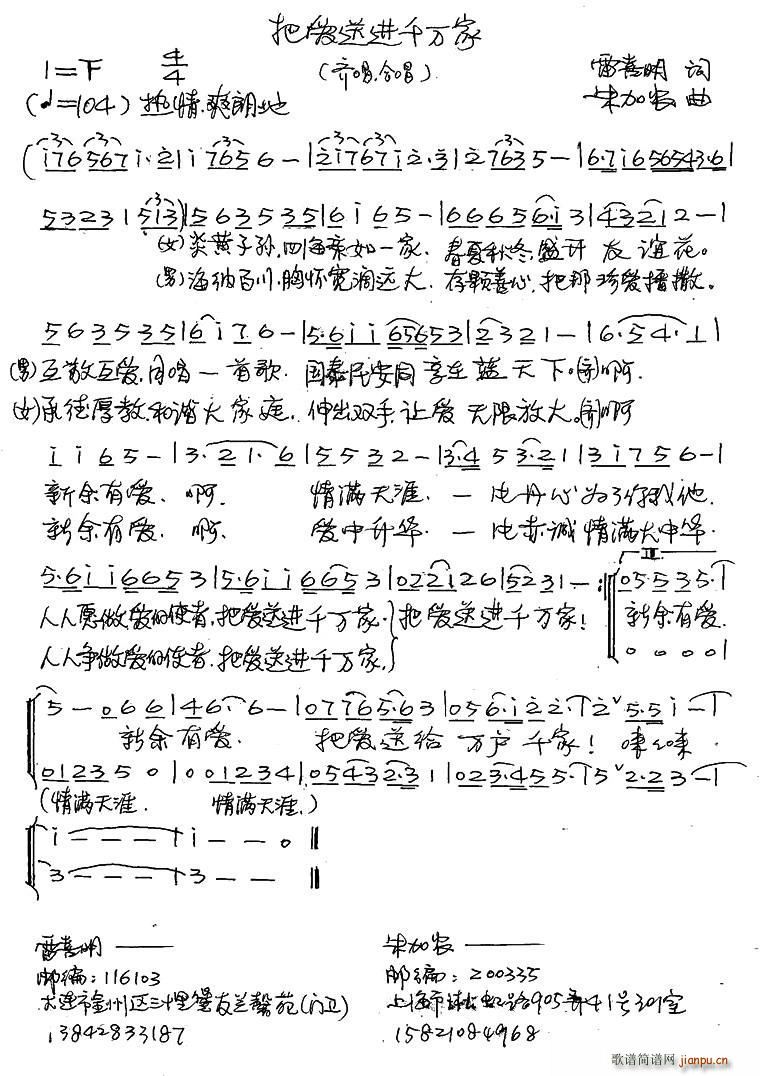 把爱送进千万家
1=F 4/4 (齐唱、合唱) 雷喜明 词
(♩=104) 热情、爽朗地 朱加农 曲
(i76 567 i·2 | i 765 6 – | 2i7 67i 2·3 | 2 7635 – | 6·7i6 56543·6 |
53231 513) | 563535 | 6i65 – | 66656·i3 | 43212 – |
(女)炎黄子孙,四海亲如一家. 春夏秋冬,盛开友谊花。
(男)海纳百川,胸怀宽阔远大. 存颗善心,把那珍爱播撒。
563535 | 6i76 – | 5·6ii65653 | 2321 – | 6·54·1 |
(男)互敬互爱,同唱一首歌. 国泰民安同享在蓝天下。(齐)啊.
(女)承德厚教,和谐大家庭. 伸出双手,让爱无限放大。(齐)啊
ii65 – | 3·21·6 | 5532 – | 3·453·21 | 3i756 – |
新余有爱. 啊. 情满天涯. 一片丹心为了你我他.
新余有爱. 啊. 爱中升华. 一片赤诚情满大中华.
5·6ii6653 | 5·6ii6653 | 022126 | 5231 – :‖ 05535· |
人人愿做爱的使者,把爱送进千万家. 把爱送进千万家! 新余有爱.
人人争做爱的使者,把爱送进千万家. 0000 |
5 – 066 | 46·6 – | 07765·63 | 056·i22· | 2ˇ5·5i – |
新余有爱. 把爱送给万户千家! 嗦嗦
012350 | 001234 | 05432·31 | 023·455· | 5ˇ2·23 – |
(情满天涯. 情满天涯.)
i – – – | i – – 0 ‖
3 – – – | 3 – – ‖
雷喜明 —— 朱加农 ——
邮编:116103 邮编:200335
大连市金州区三十里堡友兰馨苑(门卫) 上海市虹路905弄41号301室
13842833187 15821084968
歌谱简谱网 jianpu.cn